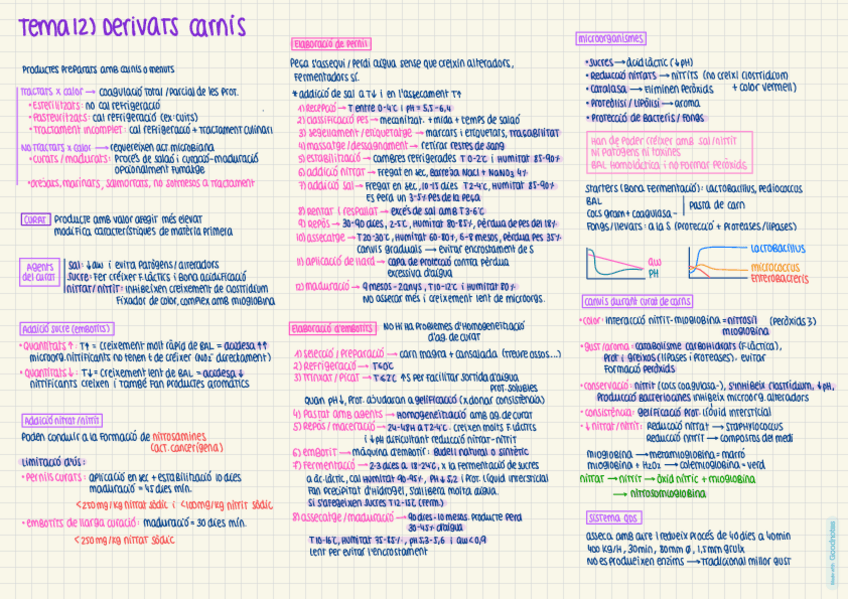 Tema 12) Derivats carnis
Productes preparats amb carnis o menuts
Tractats x calor → coagulació total/parcial de les prot.
• Esterilitzats: no cal refrigeració
• Pasteuritzats: cal refrigeració (ex: cuits)
• Tractament incomplet: cal refrigeració + tractament culinari
No tractats x calor → requereixen act microbiana
• curats/madurats: Procés de salaó i curació-maduració
opcionalment fumatge
• orejats, marinats, salmorrats, no sotmesos a tractament
Curar
Producte amb valor afegir més elevat
modifica característiques de matèria primera
Agents del curat
sal: ↓aw i evita patògens/alteradors
sucre: Fer créixer F. làctics i bona acidificació
nitrat/nitrit: inhibeixen creixement de clostridium
Fixador de color, complex amb mioglobina
Addició sucre (embotits)
• Quantitats ↑: T↑ = creixement molt ràpid de BAL = acidesa ↑↑
microorg. nitrificants no tenen t de créixer (NO₂⁻ directament)
• Quantitats ↓: T↓ = creixement lent de BAL = acidesa ↓
nitrificants creixen i també fan productes aromàtics
Addició nitrat/nitrit
Poden conduir a la formació de nitrosamines
(act. cancerígena)
Limitació d'ús:
• Pernils curats: aplicació en sec + estabilització 10 dies
maduració = 45 dies mín.
<250 mg/kg nitrat sòdic i <100mg/kg nitrit sòdic
• embotits de llarga curació: maduració = 30 dies mín.
<250 mg/kg nitrat sòdic
Elaboració de pernil
Peça s'assequi/perdi aigua sense que creixin alteradors,
fermentadors sí.
* addició de sal a T↓ i en l'assecament T↑
1) Recepció → T entre 0-4ºC i pH = 5,5-6,4
2) classificació pes → mecanitzat. + mida + temps de salaó
3) segellament/etiquetatge → marcats i etiquetats, traçabilitat
4) massatge/dessagnament → retirar restes de sang
5) estabilització → cambres refrigerades T 0-2ºC i humitat 85-90%
6) addició nitrat → Fregat en sec, barreja NaCl + NaNO₃ 4%
7) addició sal → Fregat en sec, 10-15 dies T 2-4ºC, humitat 85-90%
es perd un 3-5% pes de la peça
8) Rentar i respallat → excés de sal amb T 3-6ºC
9) Repòs → 30-90 dies, 2-5ºC, humitat 80-85%, pèrdua de pes del 18%
10) assecatge → T 20-30ºC, humitat 60-80%, 6-8 mesos, pèrdua pes 35%
canvis graduals → evitar encrostament de S
11) aplicació de llard → capa de protecció contra pèrdua
excessiva d'aigua
12) maduració → 9 mesos-2 anys, T 10-12ºC i humitat 80%
No assecar més i creixement lent de microorgs.
Elaboració d'embotits
No hi ha problemes d'homogeneització
d'ag. de curat
1) selecció/preparació → carn magra + cansalada (treure ossos...)
2) Refrigeració → T<0ºC
3) Trinxat/Picat → T≤2ºC ↑S per facilitar sortida d'aigua
prot. solubles
quan pH↓, prot. ajudaran a gelificació (x donar consistència)
4) Pastat amb agents → homogeneització amb ag. de curat
5) Repòs/maceració → 24-48h a T 2-4ºC. creixen molts F. làctics
i ↓pH dificultant reducció nitrat-nitrit
6) embotit → màquina d'embotir: Budell natural o sintètic
7) Fermentació → 2-3 dies a 18-24ºC, x la fermentació de sucres
a àc. làctic, cal humitat 90-95%, pH ↓ 5,2 i prot. líquid intersticial
fan precipitat d'hidrogel, s'allibera molta aigua.
Si s'afegeixen sucres T 12-15ºC (ferm.)
8) assecatge/maduració → 90 dies-10 mesos. Producte perd
30-45% d'aigua
T 10-16ºC, humitat 75-85%, pH 5,3-5,6 i aw<0,9
lent per evitar l'encrostament
microorganismes
• sucres → àcid làctic (↓pH)
• Reducció nitrats → nitrits (no creixi clostridium
+ color vermell)
• catalasa → eliminen peròxids
• Proteòlisi/lipòlisi → aroma
• Protecció de bacteris/fongs
Han de poder créixer amb sal/nitrit
Ni patògens ni toxines
BAL homolàctica i no formar peròxids
Starters (bona fermentació): Lactobacillus, Pediococcus
BAL
cocs gram+ coagulasa-
Pasta de carn
Fongs/llevats: a la S (protecció + proteases/lipases)
aw
pH
Lactobacillus
micrococcus
enterobacteris
canvis durant curat de carns
• color: interacció nitrit-mioglobina = nitrosil
mioglobina
(peròxids 3)
• gust/aroma: catabolisme carbohidrats (F. làctica),
prot i greixos (lipases i proteases). evitar
formació peròxids
• conservació: nitrit (cocs coagulasa-), s'inhibeix clostridium, ↓pH,
producció bacteriocines inhibeix microorg. alteradors
• consistència: gelificació prot. líquid intersticial
• ↓ nitrat/nitrit: Reducció nitrat → staphylococcus
Reducció nitrit → compostos del medi
mioglobina → metamioglobina = marró
mioglobina + H₂O₂ → colemioglobina = verd
nitrat → nitrit → òxid nítric + mioglobina
→ nitrosomioglobina
Sistema QDS
asseca amb aire i redueix procés de 40 dies a 40min
400 kg/h, 30min, 80mm ø, 1,5mm gruix
No es produeixen enzims → tradicional millor gust
Made with Goodnotes